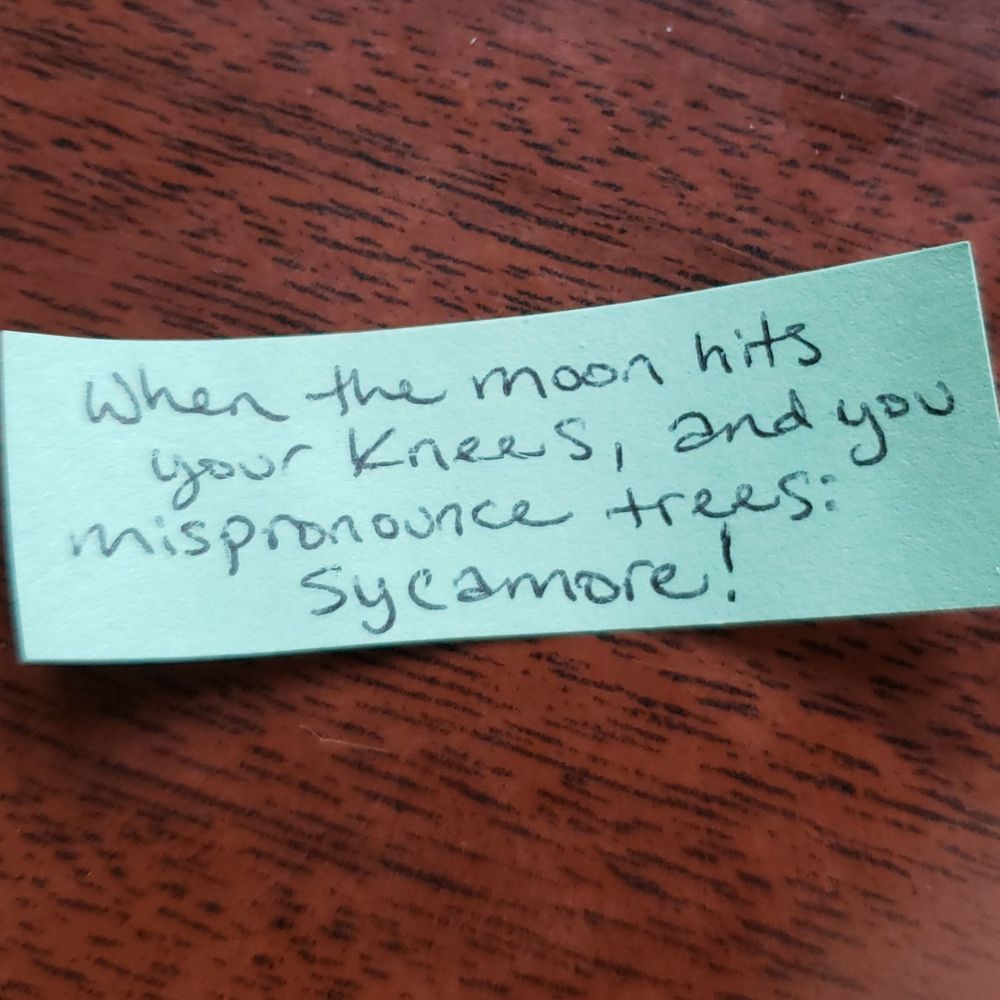 When the moon hits
your Knees, and you
mispronounce trees:
Sycamore!